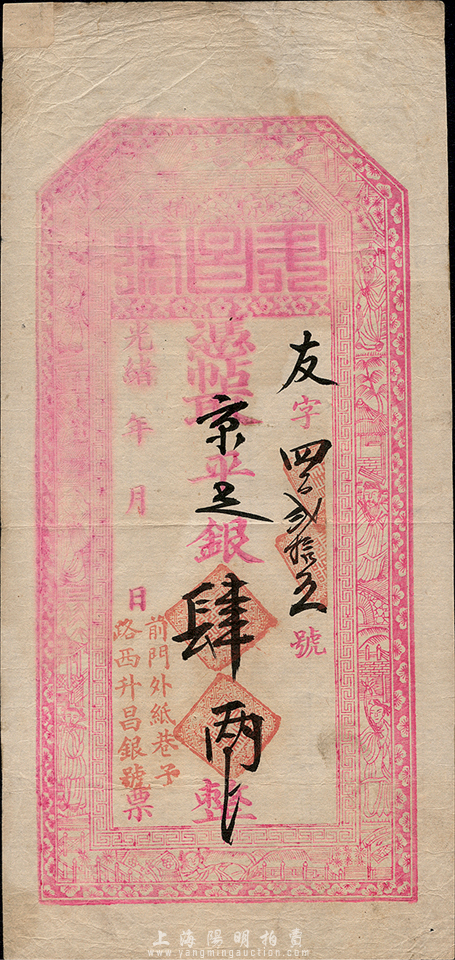 升昌號
友字四百弍拾五號
憑帖取京平足銀肆兩整
光緒 年 月 日
前門外紙巷子
路西升昌銀號票
上海陽明拍賣
www.yangmingauction.com